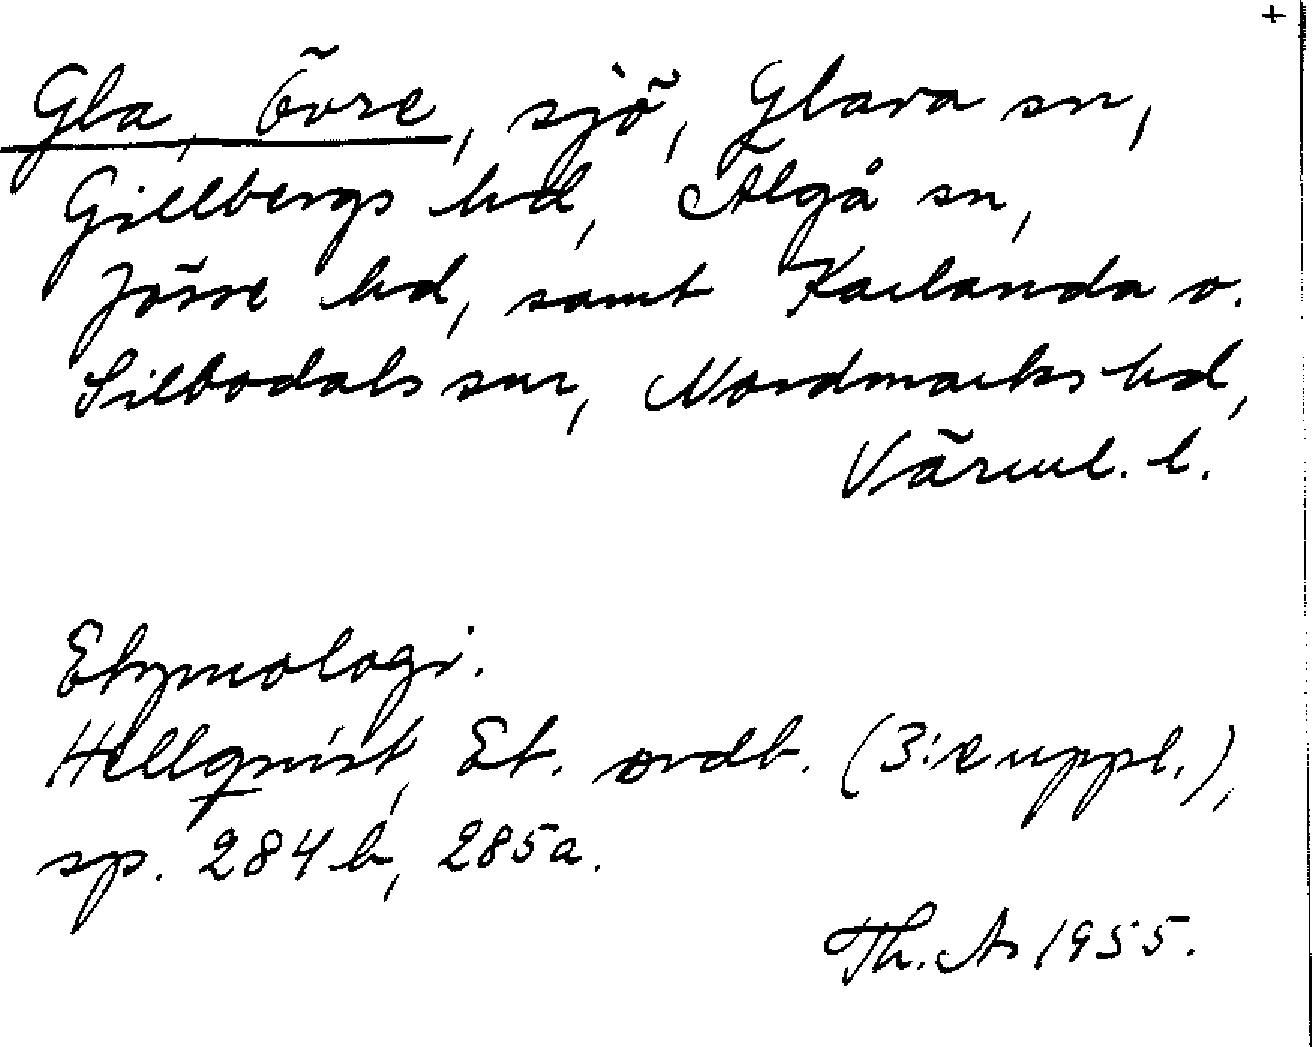 +
Gla, Övre, sjö, Glava sn,
Gillbergs hd, Älgå sn,
Jösse hd, samt Karlanda o.
Silbodals snr, Nordmarks hd,
Värml. l.
Etymologi.
Hellquist, Et. ordb. (3:e uppl.),
sp. 284 b, 285a.
Th. A. 1955.